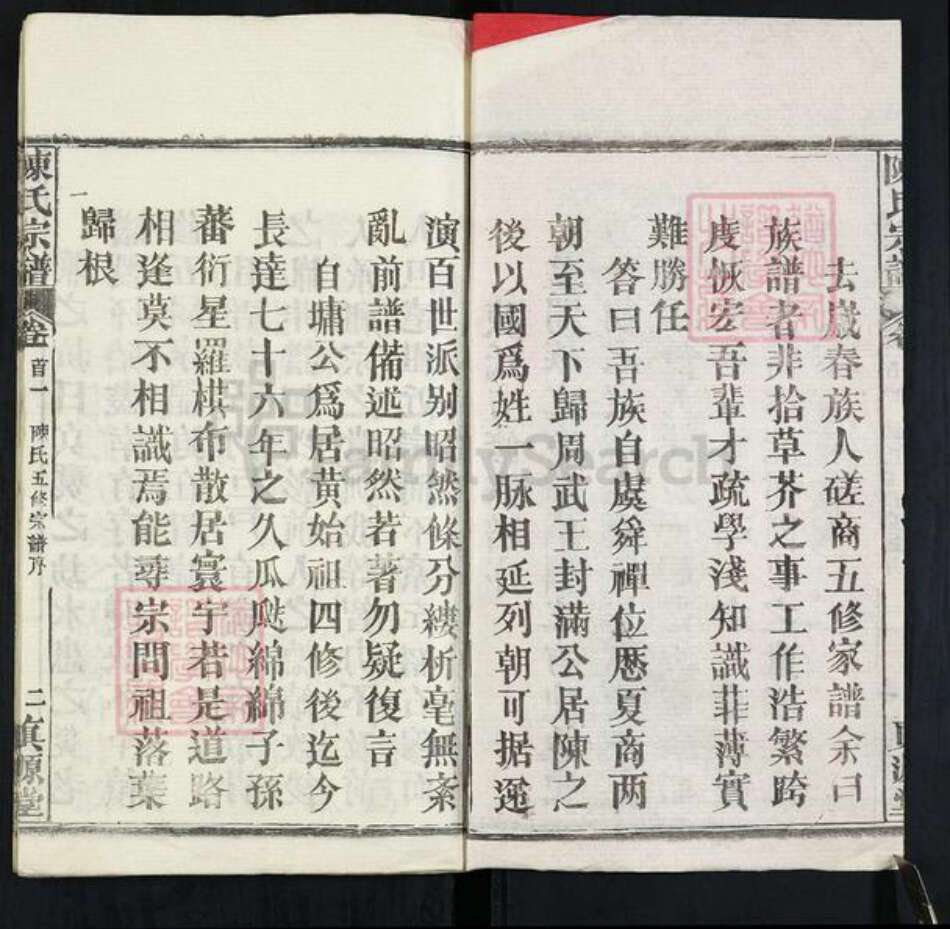 去嵗春族人磋商五修家譜余曰
族譜者非拾草芥之事工作浩繁跨
度恢宏吾輩才疏學淺知識菲薄實
難勝任
答曰吾族自虞舜禪位厯夏商两
朝至天下歸周武王封滿公居陳之
後以國爲姓一脉相延列朝可据
演百世派别昭然條分縷析毫無紊
亂前譜備述昭然若著勿疑復言
自墉公爲居黄始祖四修後迄今
長達七十六年之久瓜瓞綿綿子孫
蕃衍星羅棋布散居寰宇若是道路
相逢莫不相識焉能尋宗問祖落葉
歸根
陳氏宗譜
卷 首一
陳氏五修宗譜序
二
真源堂
FamilySearch